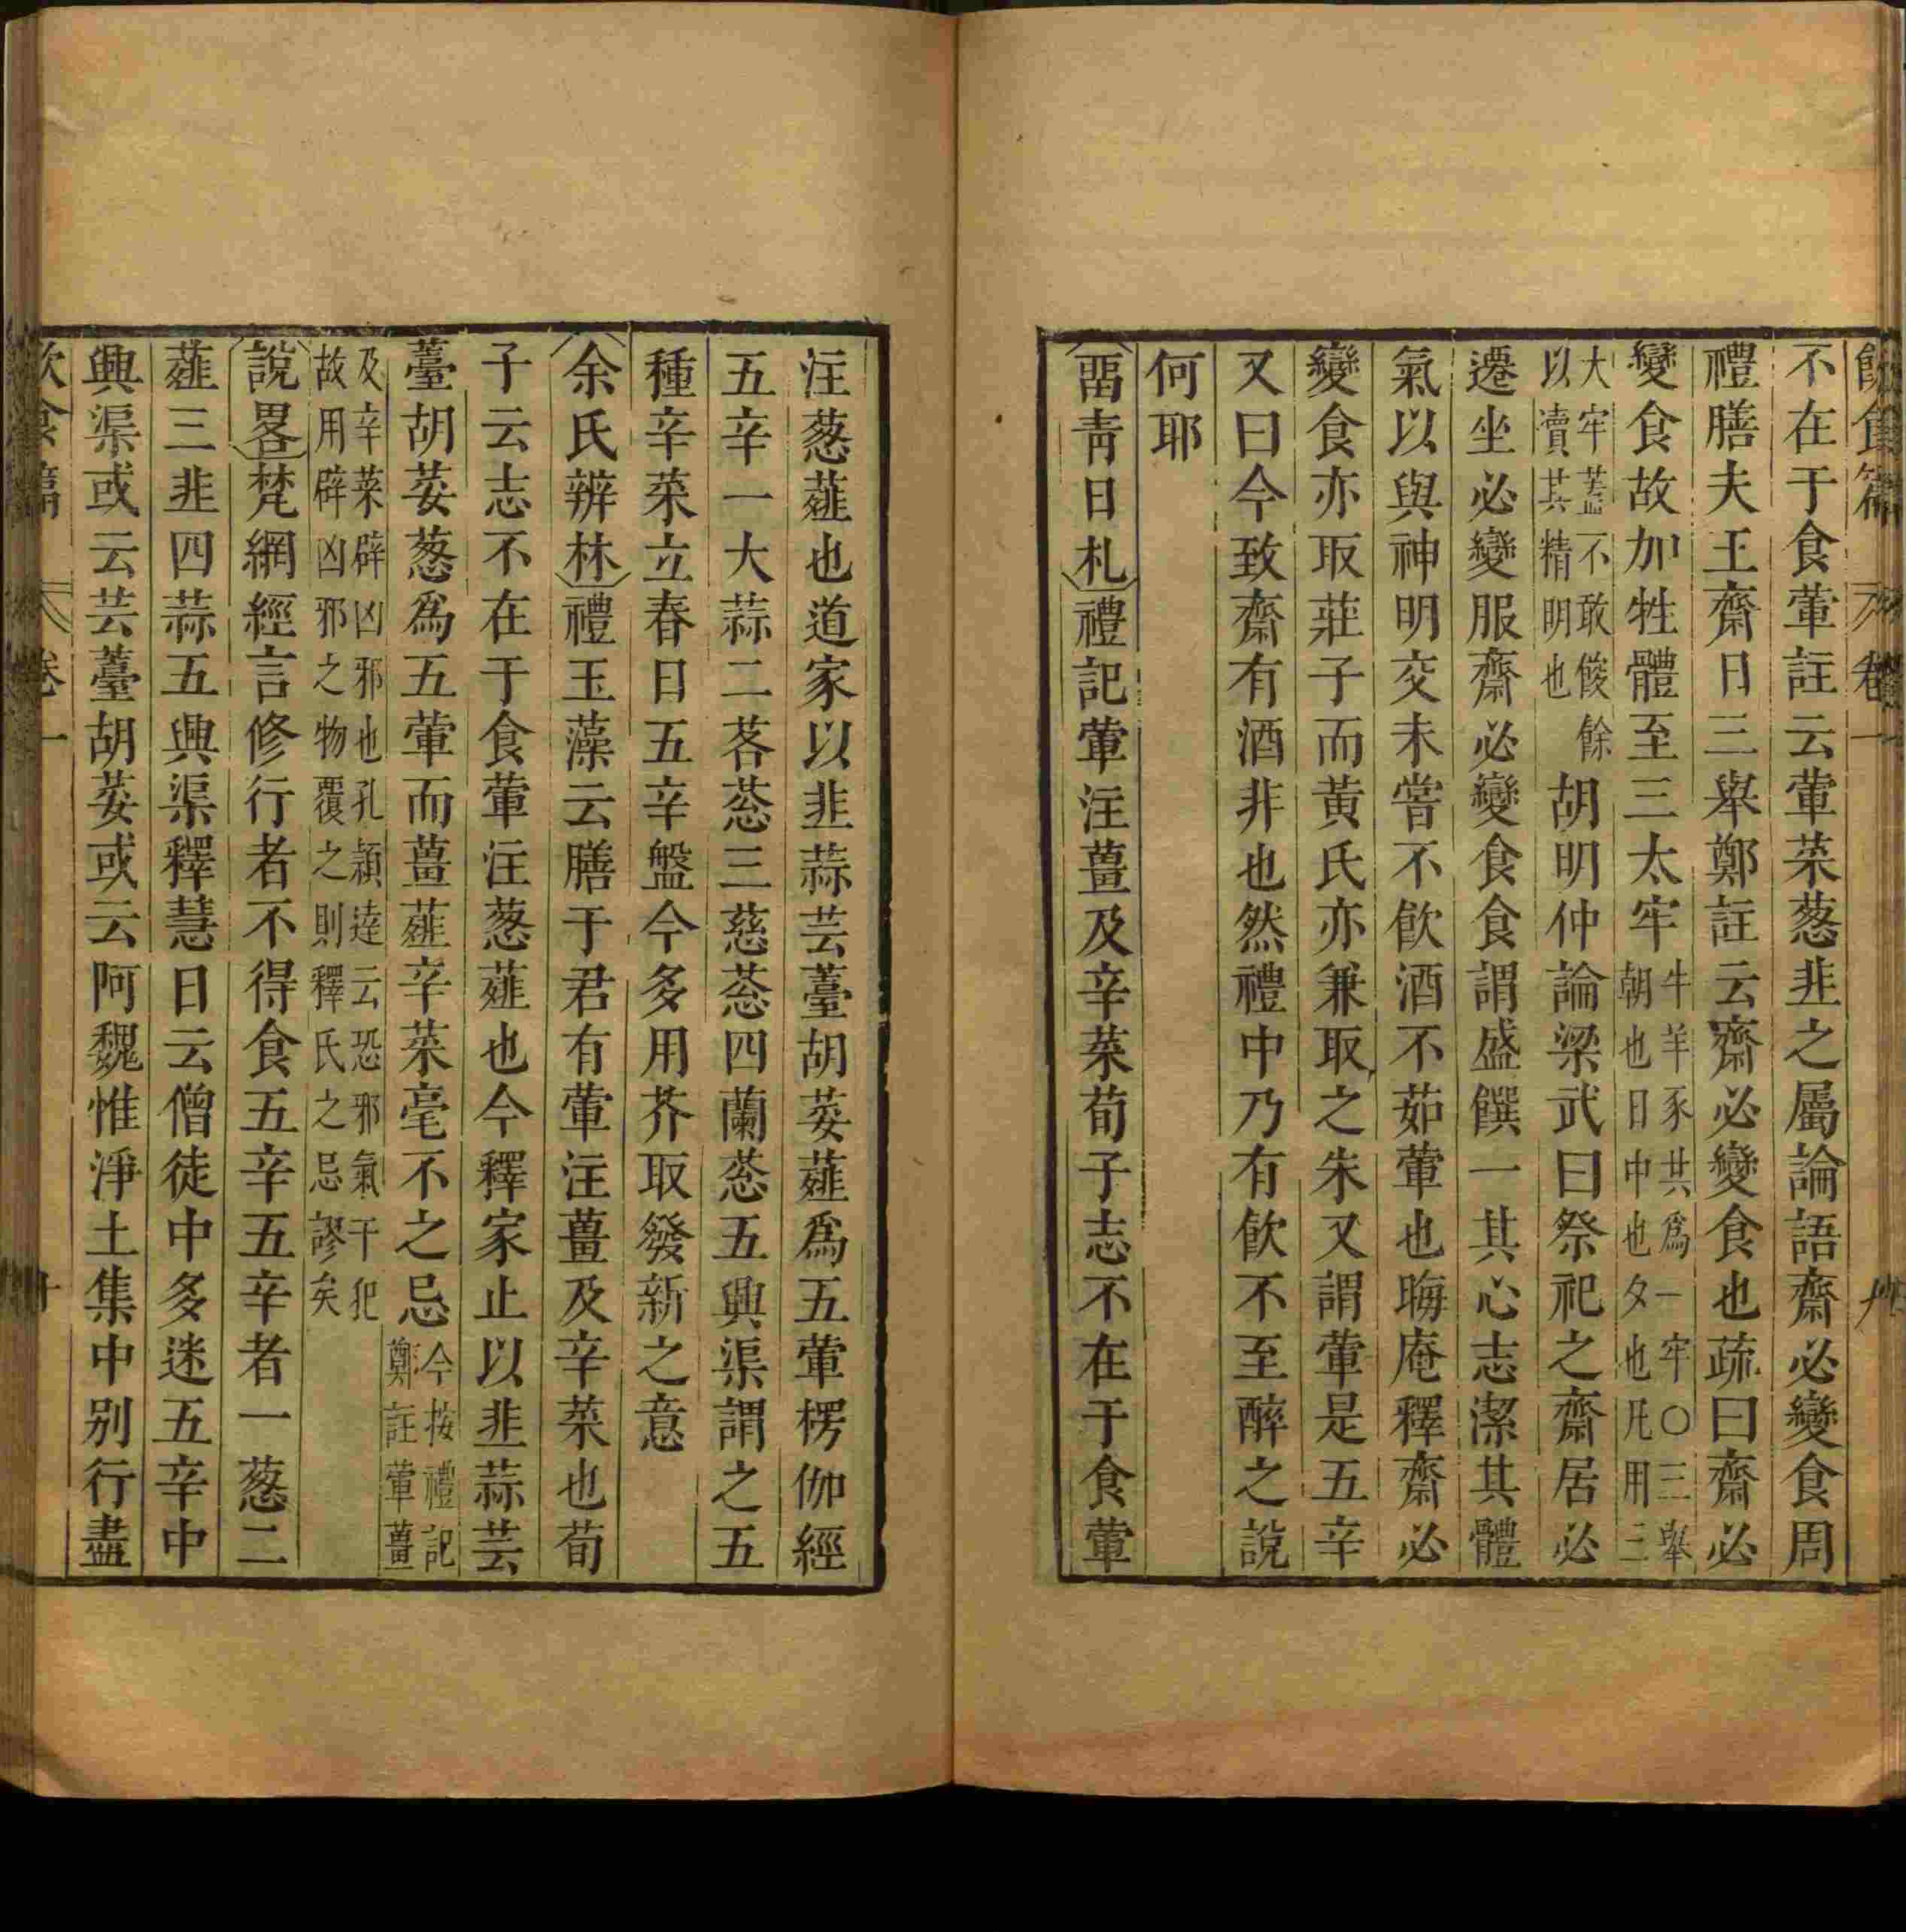 飲食篇 卷一 九
不在于食葷註云葷菜葱韭之屬論語齋必變食周
禮膳夫王齋日三舉鄭註云齋必變食也疏曰齋必
變食故加牲體至三太牢牛羊豕共爲一牢〇三舉朝也日中也夕也凡用三
大牢蓋不敢餕餘以瀆其精明也胡明仲論梁武曰祭祀之齋居必
遷坐必變服齋必變食食謂盛饌一其心志潔其體
氣以與神明交未嘗不飲酒不茹葷也晦庵釋齋必
變食亦取莊子而黃氏亦兼取之朱又謂葷是五辛
又曰今致齋有酒非也然禮中乃有飲不至醉之說
何耶
畱青日札禮記葷注薑及辛菜荀子志不在于食葷
注葱薤也道家以韭蒜芸薹胡荽薤爲五葷楞伽經
五辛一大蒜二茖葱三慈葱四蘭葱五興渠謂之五
種辛菜立春日五辛盤今多用芥取發新之意
余氏辨林禮玉藻云膳于君有葷注薑及辛菜也荀
子云志不在于食葷注葱薤也今釋家止以韭蒜芸
薹胡荽葱爲五葷而薑薤辛菜毫不之忌今按禮記鄭註葷薑
及辛菜辟凶邪也孔穎達云恐邪氣干犯故用辟凶邪之物覆之則釋氏之忌謬矣
說畧梵網經言修行者不得食五辛五辛者一葱二
薤三韭四蒜五興渠釋慧日云僧徒中多迷五辛中
興渠或云芸薹胡荽或云阿魏惟淨土集中别行盡
飲食篇 卷一 十